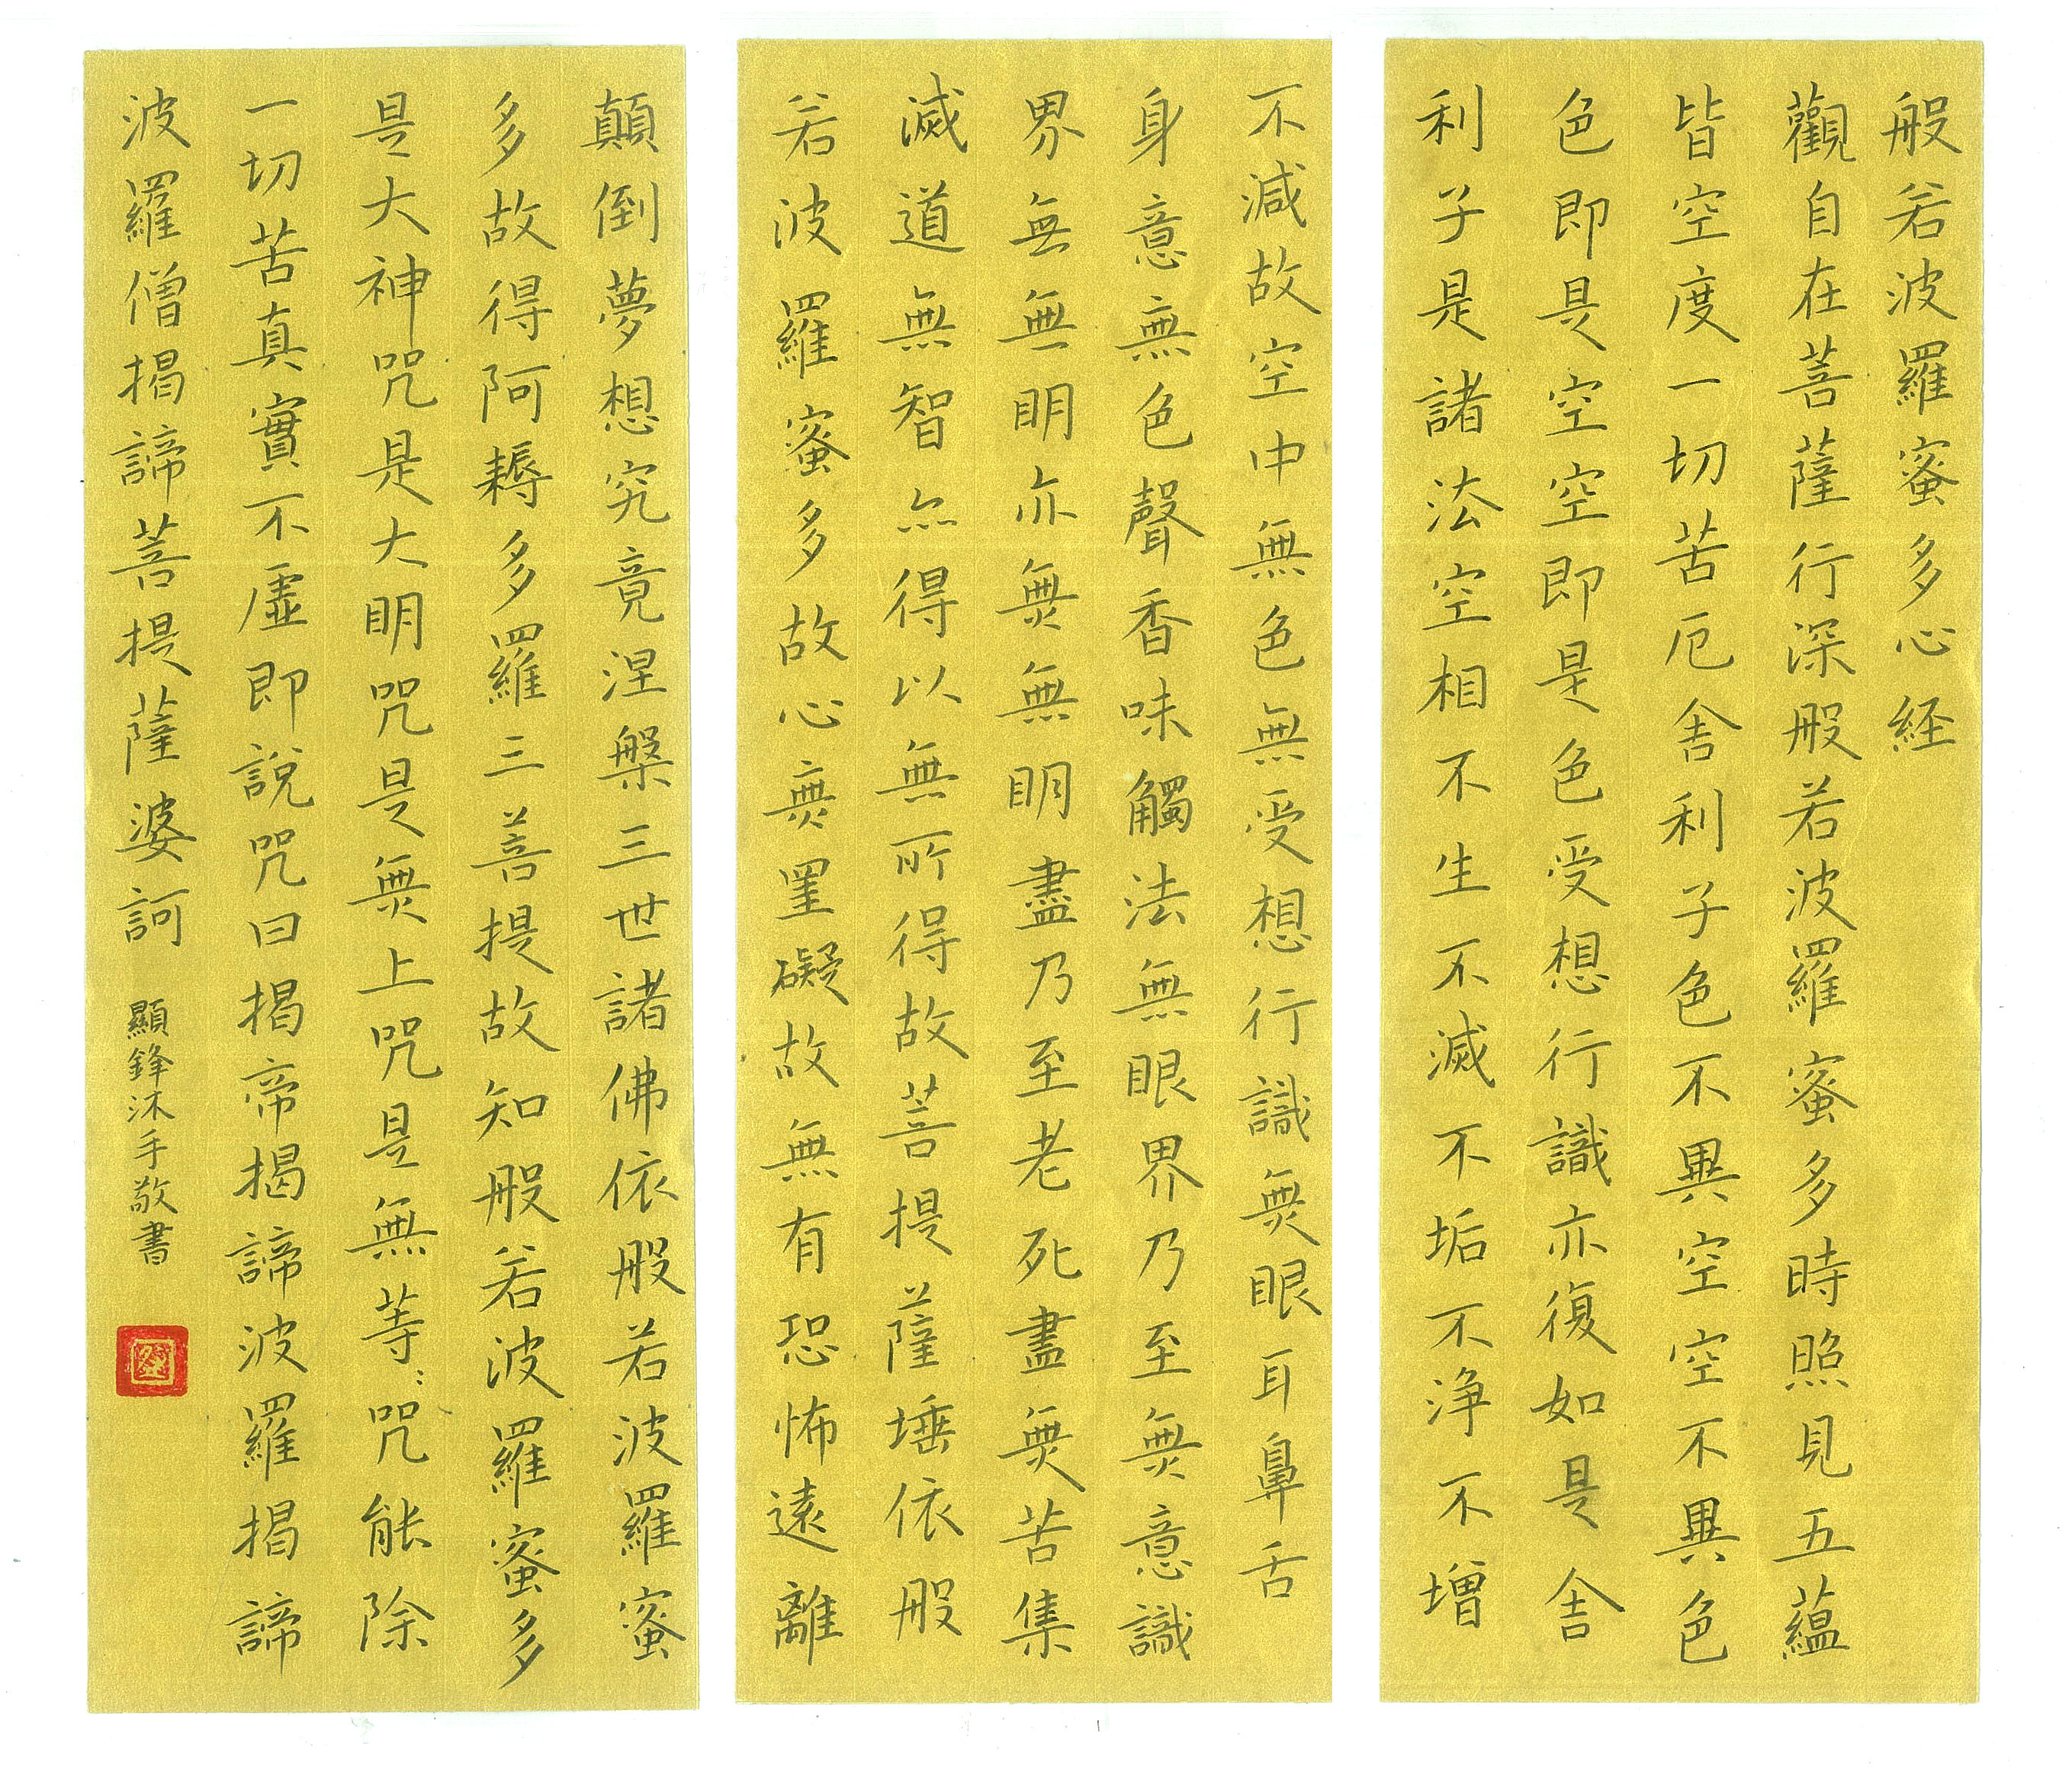 般若波羅蜜多心経
觀自在菩薩行深般若波羅蜜多時照見五蘊
皆空度一切苦厄舍利子色不異空空不異色
色即是空空即是色受想行識亦復如是舍
利子是諸法空相不生不滅不垢不浄不增
不減故空中無色無受想行識無眼耳鼻舌
身意無色聲香味觸法無眼界乃至無意識
界無無明亦無無明盡乃至老死盡無苦集
滅道無智亦得以無所得故菩提薩埵依般
若波羅蜜多故心無罣礙故無有恐怖遠離
顛倒夢想究竟涅槃三世諸佛依般若波羅蜜
多故得阿耨多羅三菩提故知般若波羅蜜多
是大神咒是大明咒是無上咒是無等：咒能除
一切苦真實不虛即說咒曰揭帝揭諦波羅揭諦
波羅僧揭諦菩提薩婆訶
顯鋒沐手敬書